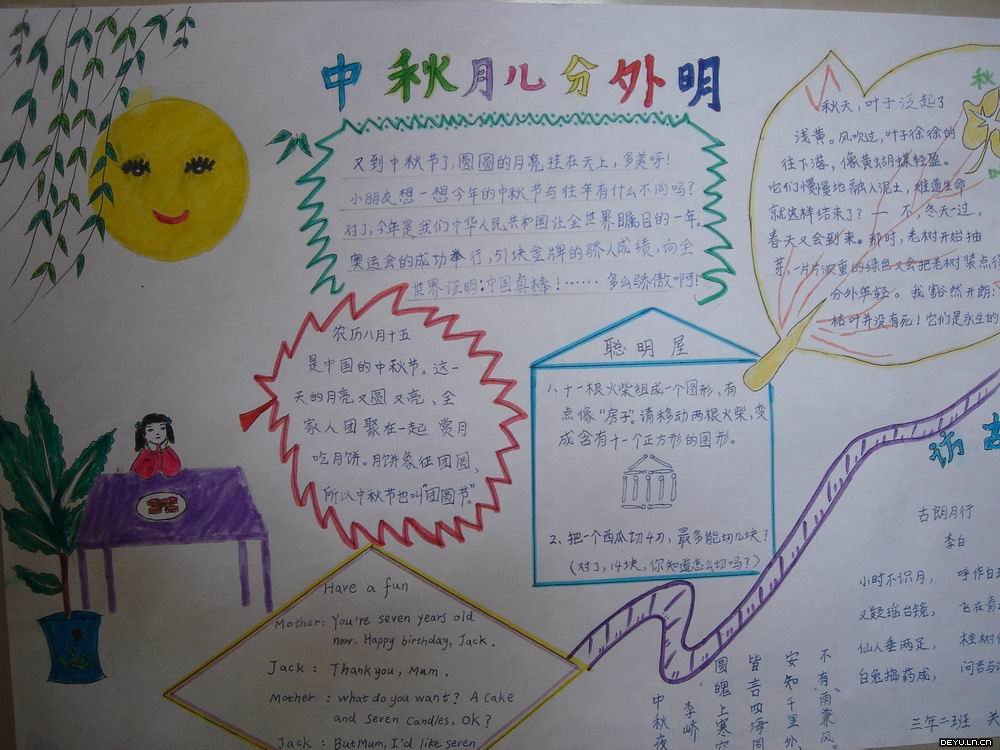 中秋月儿分外明
又到中秋节了,圆圆的月亮挂在天上,多美呀!
小朋友想一想今年的中秋节与往年有什么不同吗?
对了,今年是我们中华人民共和国让全世界瞩目的一年。
奥运会的成功举行,51块金牌的骄人成绩,向全
世界证明:中国真棒!……多么骄傲啊!
秋
秋天,叶子泛起了
浅黄。风吹过,叶子徐徐的
往下落,像黄蝴蝶轻盈。
它们慢慢地融入泥土,难道生命
就这样结束了?一不,冬天一过,
春天又会到来。那时,老树开始抽
芽,一片片浓重的绿色又会把老树装点得
分外年轻。我豁然开朗:
枯叶并没有死!它们是永生的
农历八月十五
是中国的中秋节。这一
天的月亮又圆又亮,全
家人团聚在一起赏月
吃月饼。月饼象征团圆,
所以中秋节也叫"团圆节"。
聪明屋
1、十一根火柴组成一个图形,有
点像"房子"。请移动两根火柴,变
成含有十一个正方形的图形。
2、把一个西瓜切4刀,最多能切几块?
(对了,14块,你知道怎么切吗?)
Have a fun
Mother: You're seven years old
now. Happy birthday, Jack.
Jack: Thank you, Mum.
Mother: what do you want? A cake
and seven candles, OK?
Jack: But Mum, I'd like seven
访古
古朗月行
李白
小时不识月, 呼作白玉
又疑瑶台镜, 飞在青
仙人垂两足, 桂树何
白兔捣药成, 问言与
中秋夜
李峤
圆魄上寒空
皆言四海同
安知千里外
不有雨兼风
三年二班 关
DEYU.LN.CN